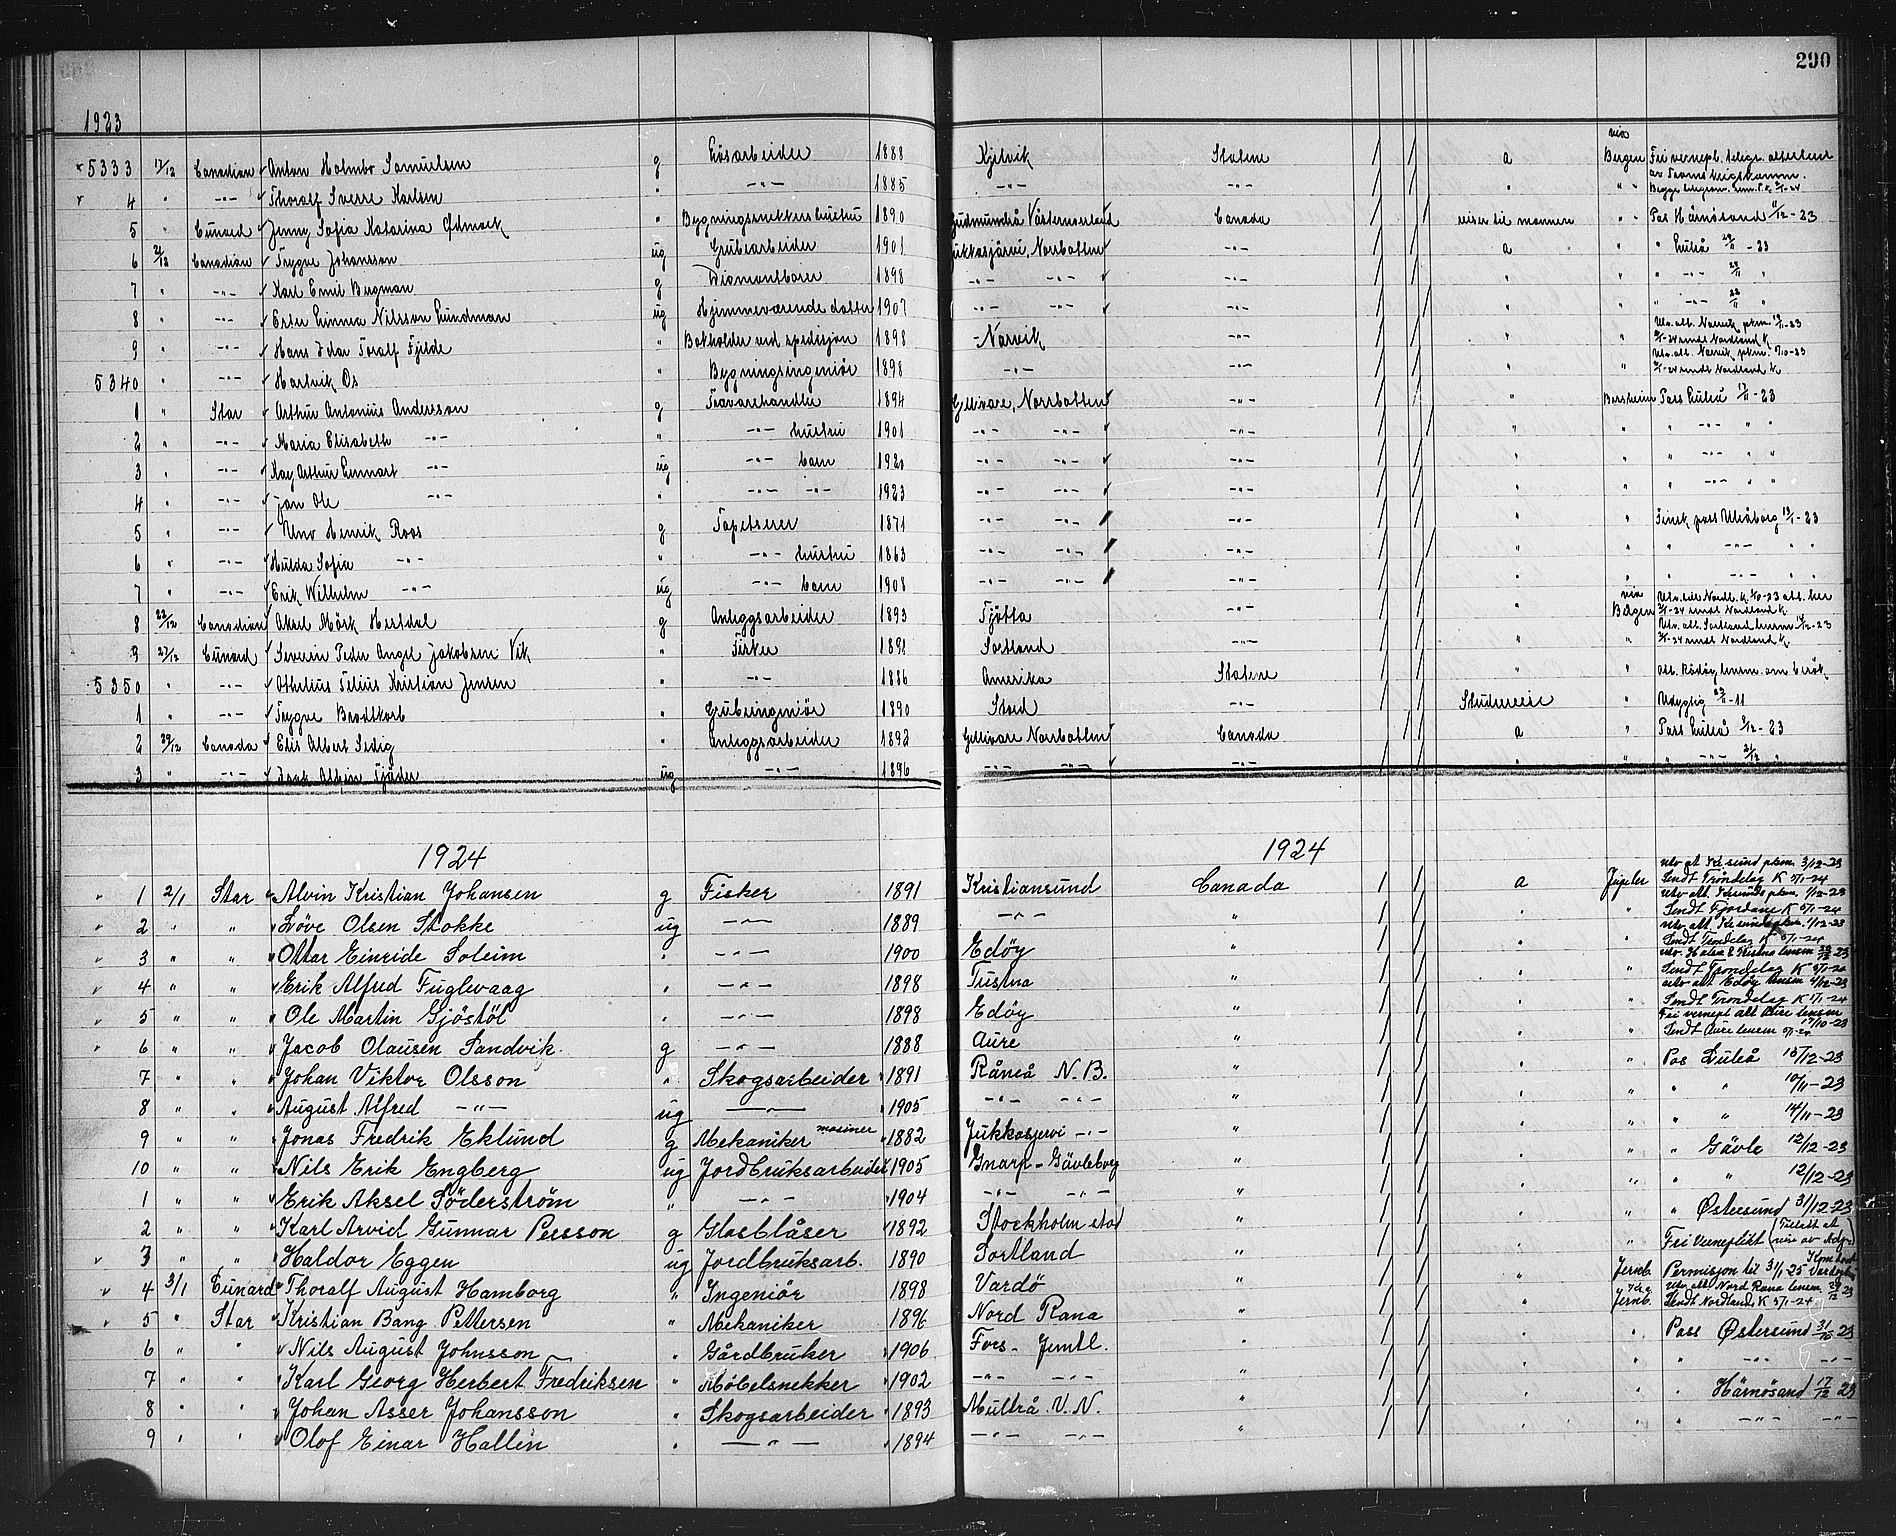 290
1923
5333 17/12 Canadian Anton Holmbo Samuelsen g Løsarbeider 1888 Kjelvik Statene a via Bergen Fri vernepl. telegr. attestert
4 " -"- Thoralf Sverre Karlsen " -"- 1885 -"- -"- " " "
5 " Cunard Jenny Sofia Katarina Ödmark " Bygningssnekkers hustru 1890 Gudmundrå Västernorrland Canada reiser til mannen " " Pas Härnösand 11/12-23
6 21/12 Canadian Trygve Johansson ug Grubearbeider 1901 Jukkasjärvi, Norrbotten -"- a " " Luleå 29/11-23
7 " -"- Karl Emil Bergman g Diamantborer 1898 -"- -"- -"- " " " -"- 28/11 "
8 " -"- Ester Linnea Nilsson Lundman ug Hjemmeværende datter 1907 -"- -"- -"- " " " -"- 22/11 "
9 " -"- Hans Idar Toralf Fjelde " Bokholder ved spedisjon 1898 Narvik -"- " "
5340 " -"- Hartvik Os " Bygningsingeniør 1898 -"- -"- " "
1 " Star Arthur Antonius Andersson g Travarehandler 1894 Gellivare, Norrbotten -"- " Pass Luleå 17/11-23
2 " -"- Maria Elisabeth -"- " -"- hustru 1901 -"- -"- -"- " " " -"- " "
3 " -"- Kay Arthur Lennart -"- ug -"- barn 1920 -"- -"- -"- " " " -"- " "
4 " -"- Jan Ole -"- " -"- -"- 1923 -"- -"- -"- " " " -"- " "
5 " -"- Uno Henrik Roos g Tapetserer 1871 -"- -"- -"- " " Finsk pass Uleåborg 19/1-23
6 " -"- Hulda Sofia -"- " -"- hustru 1863 -"- -"- -"- " " " -"- " "
7 " -"- Erik Wilhelm -"- ug -"- barn 1908 -"- -"- -"- " " " -"- " "
8 22/12 Canadian Mörk Hertdal g Anleggsarbeider 1893 Tjøtta -"- " via Bergen
9 27/12 Cunard Severin Peder Angel Jakobsen Vik " Fisker 1891 Sortland -"- " "
5350 " -"- Othelius Tilius Kristian Jensen " -"- 1886 Amerika Statene " "
1 " -"- Trygve Brodtkorb " Grubeingeniør 1890 Stord -"- Studiereise " Udygtig 23/11-11
2 29/12 Canada Elis Albert Sedig " Anleggsarbeider 1892 Gellivare Norrbotten Canada a " Pass Luleå 5/12-23
3 " -"- Isak Albin Tjäder ug -"- 1896 -"- -"- -"- " " " -"- 21/12 "
1924 1924
1 2/1 Star Alvin Kristian Johansen g Fisker 1891 Kristiansund Canada a Sendt Trøndelag K 5/1-24
2 " " Løve Olsen Stokke ug -"- 1889 -"- " " " Sendt Fjordane K 5/1-24
3 " " Ottar Einride Soleim " -"- 1900 Edøy " " Sendt Trøndelag K 5/1-24
4 " " Erik Alfred Fuglevaag " -"- 1898 Tustna " " " Sendt Trøndelag K 5/1-24
5 " " Ole Martin Gjøstøl " -"- 1898 Edøy " " " Sendt Trøndelag K 5/1-24
6 " " Jacob Olausen Sandvik g -"- 1888 Aure " " " Fri vernepl att Aure lensm 17/10-23
7 " " Johan Viktor Olsson " Skogsarbeider 1891 Råneå N.B. " " " Pas Luleå 15/12-23
8 " " August Alfred -"- ug -"- 1905 -"- -"- " " " " " 10/11-23
9 " " Jonas Fredrik Eklund g Mekaniker 1882 Jukkasjervi -"- " " " " " 14/11-23
10 " " Nils Erik Engberg ug Jordbruksarbeider 1905 Gnarp - Gävleborg " " " " Gävle 12/12-23
1 " " Erik Aksel Söderström " -"- 1904 -"- -"- " " " " " 12/12-23
2 " " Karl Arvid Gunnar Persson g Glasblåser 1892 Stockholm stad " " " " Østersund 31/12-23
3 " " Haldor Eggen ug Jordbruksarb. 1890 Sortland " " " Fri Verneplikt
4 3/1 Cunard Thoralf August Hamborg " Ingeniør 1898 Vardø " " Jernb. Permisjon til 31/1 25
5 " Star Kristian Bang Pettersen " Mekaniker 1896 Nord Rana " " Jernb. Sendt Nordlands K 5/1-24
6 " " Nils August Johnsson " Gårdbruker 1906 Fors - Jemtl. " " " Pass Østersund 31/10 23
7 " " Karl Georg Herbert Fredriksen " Møbelsnekker 1902 -"- -"- " " " " -"- -"-
8 " " Johan Asser Johansson " Skogsarbeider 1893 Multrå V.N. " " " " Härnösand 17/12 23
9 " " Olof Einar Hallin " -"- 1894 -"- -"- " " " " -"- -"-